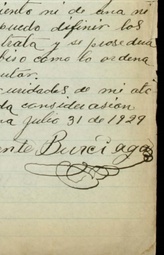 iento ni de una ni
puedo difinir los
trata y se prosedera
eso como lo ordena
utar.
unidades de mi ate
da considerasion
Julio 31 de 1929
ente Burciaga